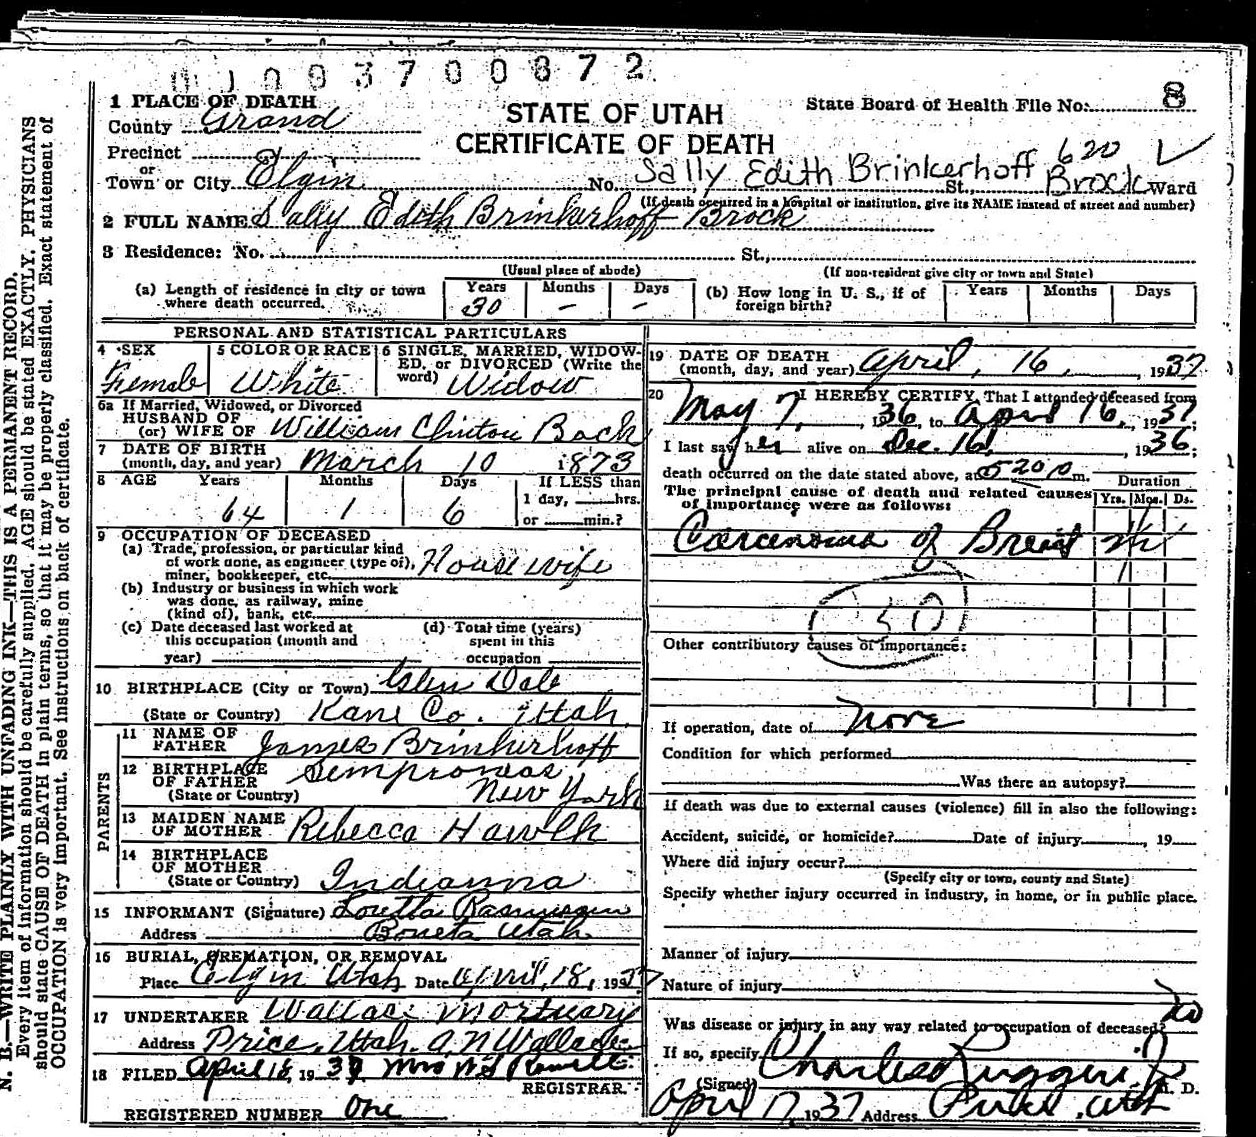 0 1 0 0 3 7 0 0 8 7 2
STATE OF UTAH
CERTIFICATE OF DEATH
State Board of Health File No. 8
620
1 PLACE OF DEATH
County Grand
Precinct
or
Town or City Elgin No. St., Ward
Sally Edith Brinkerhoff Brock
(If death occurred in a hospital or institution, give its NAME instead of street and number)
2 FULL NAME Sally Edith Brinkerhoff Brock
3 Residence: No. St.,
(Usual place of abode) (If non-resident give city or town and State)
(a) Length of residence in city or town where death occurred. Years 30 Months – Days –
(b) How long in U. S., if of foreign birth? Years Months Days
PERSONAL AND STATISTICAL PARTICULARS
4 SEX Female
5 COLOR OR RACE White
6 SINGLE, MARRIED, WIDOW-
ED, or DIVORCED (Write the
word) Widow
6a If Married, Widowed, or Divorced
HUSBAND OF
(or) WIFE OF William Clinton
7 DATE OF BIRTH
(month, day, and year) March 10 1873
8 AGE Years 64 Months 1 Days 6
If LESS than
1 day, hrs.
or min.?
9 OCCUPATION OF DECEASED
(a) Trade, profession, or particular kind
of work done, as engineer (type of),
miner, bookkeeper, etc. House wife
(b) Industry or business in which work
was done, as railway, mine
(kind of), bank, etc.
(c) Date deceased last worked at
this occupation (month and
year)
(d) Total time (years)
spent in this
occupation
10 BIRTHPLACE (City or Town) Glen Dale
(State or Country) Kane Co. Utah
PARENTS
11 NAME OF
FATHER James Brinkerhoff
12 BIRTHPLACE
OF FATHER Sempronias
(State or Country) New York
13 MAIDEN NAME
OF MOTHER Rebecca
14 BIRTHPLACE
OF MOTHER
(State or Country) Indianna
15 INFORMANT (Signature) Loretta Rasmussen
Address Boneta Utah
16 BURIAL, CREMATION, OR REMOVAL
Place Elgin Utah Date April 18, 1937
17 UNDERTAKER Wallace Mortuary
Address Price, Utah. A N Wallace
18 FILED April 18, 1937 Mrs
REGISTRAR.
REGISTERED NUMBER One
19 DATE OF DEATH
(month, day, and year) April, 16, 1937
20 I HEREBY CERTIFY, That I attended deceased from
May 7, 1936, to April 16, 1937;
I last saw her alive on Dec. 16, 1936;
death occurred on the date stated above, at 5 20 p m.
The principal cause of death and related causes
of importance were as follows:
Duration
Yrs. Mos. Ds.
Carcenoma of Breast
Other contributory causes of importance:
If operation, date of none
Condition for which performed
Was there an autopsy?
If death was due to external causes (violence) fill in also the following:
Accident, suicide, or homicide? Date of injury , 19
Where did injury occur?
(Specify city or town, county and State)
Specify whether injury occurred in industry, in home, or in public place.
Manner of injury
Nature of injury
Was disease or injury in any way related to occupation of deceased? no
If so, specify
(Signed) Charles Ruggeri Jr M. D.
April 17 1937 Address Price, Utah
N. B.—WRITE PLAINLY WITH UNFADING INK—THIS IS A PERMANENT RECORD.
Every item of information should be carefully supplied. AGE should be stated EXACTLY. PHYSICIANS
should state CAUSE OF DEATH in plain terms, so that it may be properly classified. Exact statement of
OCCUPATION is very important. See instructions on back of certificate.